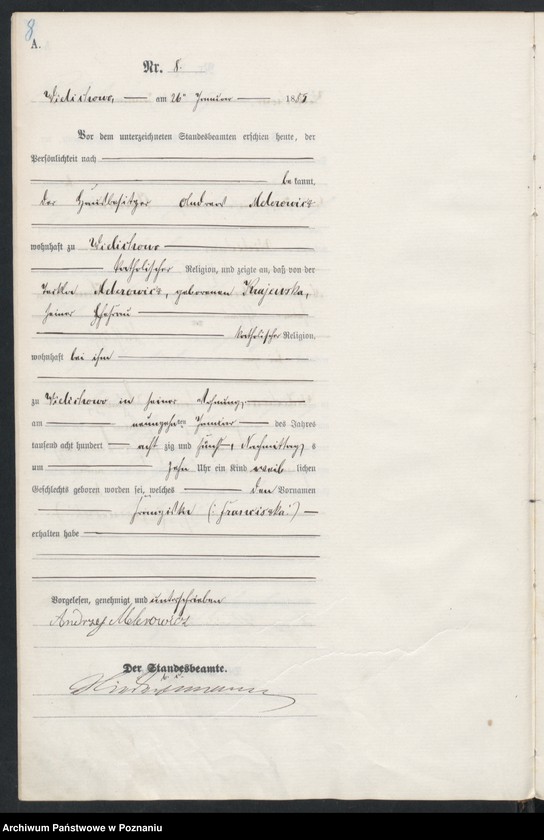 8
A.
Nr. 8.
am 26 Januar 1885
Vor dem unterzeichneten Standesbeamten erschien heute, der
Persönlichkeit nach
be kannt,
der Andreas
wohnhaft zu
katholischer Religion, und zeigte an, daß von der
geborenen Krajewska,
seiner Ehefrau
katholischer Religion,
wohnhaft bei ihm
zu in seiner Wohnung,
am neunzehnten Januar des Jahres
tausend acht hundert acht zig und fünf, Nachmittags
um zehn Uhr ein Kind weib lichen
Geschlechts geboren worden sei, welches den Vornamen
Franziska (: Franciszka :)
erhalten habe
Vorgelesen, genehmigt und unterschrieben
Andrzej
Der Standesbeamte.
Archiwum Państwowe w Poznaniu